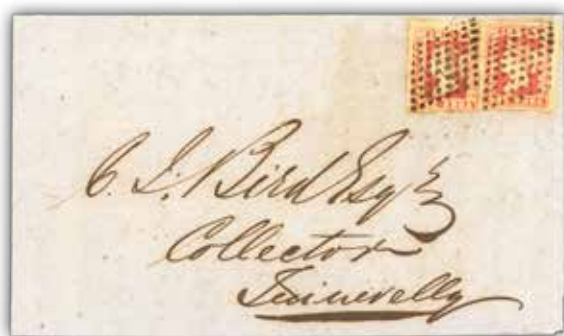 C. J. Bird Esqre
Collector
Tinnevelly